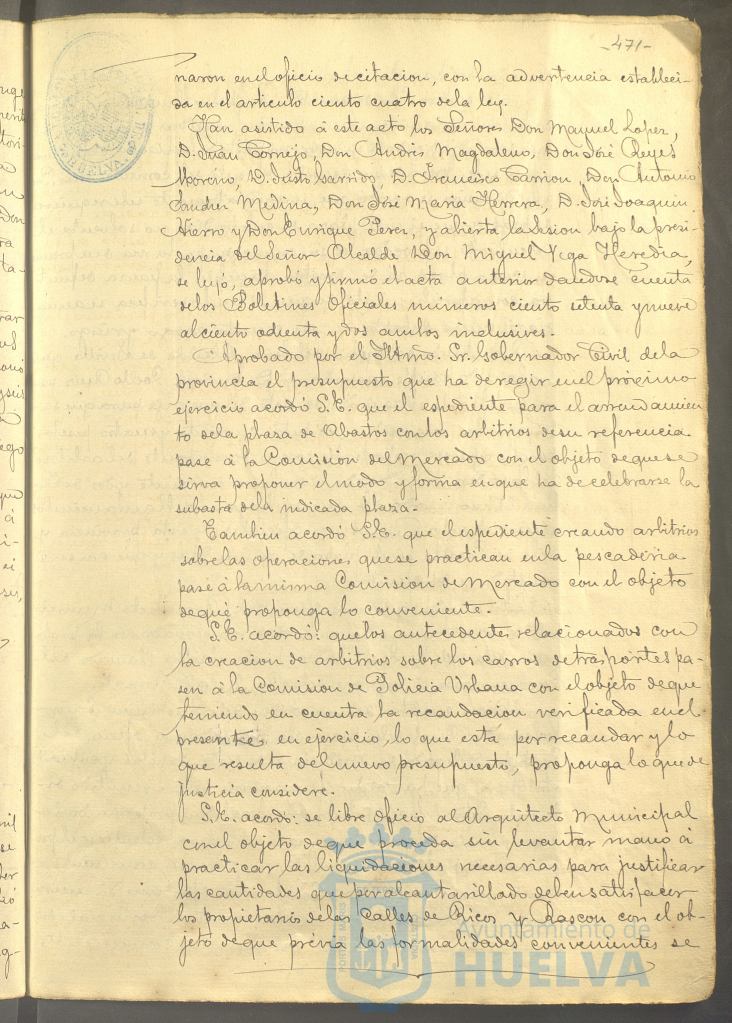 -471-
naron en el oficio de citacion, con la advertencia estableci-
da en el articulo ciento cuatro de la ley.
Han asistido á este acto los Señores Don Manuel Lopez,
D. Juan Cornejo, Don Andrés Magdaleno, Don José Reyes
Moreno, D. Justo Garrido, D. Francisco Carrion, Don Antonio
Medina, Don José Maria Herrera, D. José Joaquin
Hierro y Don Enrique Perez, y abierta la Sesion bajo la presi-
dencia del Señor Alcalde Don Miguel Vega Heredia,
se leyó, aprobó y firmó el acta anterior dandose cuenta
de los Boletines Oficiales números ciento setenta y nueve
al ciento ochenta y dos ambos inclusives.
Aprobado por el Iltmo. Sr. Gobernador Civil de la
provincia el presupuesto que ha de regir en el próximo
ejercicio acordó S.E. que el espediente para el arrendamien
to de la plaza de Abastos con los arbitrios de su referencia
pase á la Comision del Mercado con el objeto de que se
sirva proponer el modo y forma en que ha de celebrarse la
subasta de la indicada plaza.
Tambien acordó S.E. que el espediente creando arbitrios
sobre las operaciones que se practican en la pescadería
pase á la misma Comision de Mercado con el objeto
de que proponga lo conveniente.
S.E. acordó: que los antecedentes relacionados con
la creacion de arbitrios sobre los carros de trasportes pa-
sen á la Comision de Policia Urbana con el objeto de que
teniendo en cuenta la recaudacion verificada en el
presente en ejercicio, lo que está por recaudar y lo
que resulta del nuevo presupuesto, proponga lo que de
justicia considere.
S.E. acordó: se libre oficio al Arquitecto Municipal
con el objeto de que proceda sin levantar mano á
practicar las liquidaciones necesarias para justificar
las cantidades que por alcantarillado deben satisfacer
los propietarios de las Calles de Ricos y Rascon con el ob-
jeto de que prévia las formalidades convenientes se
Ayuntamiento de
HUELVA